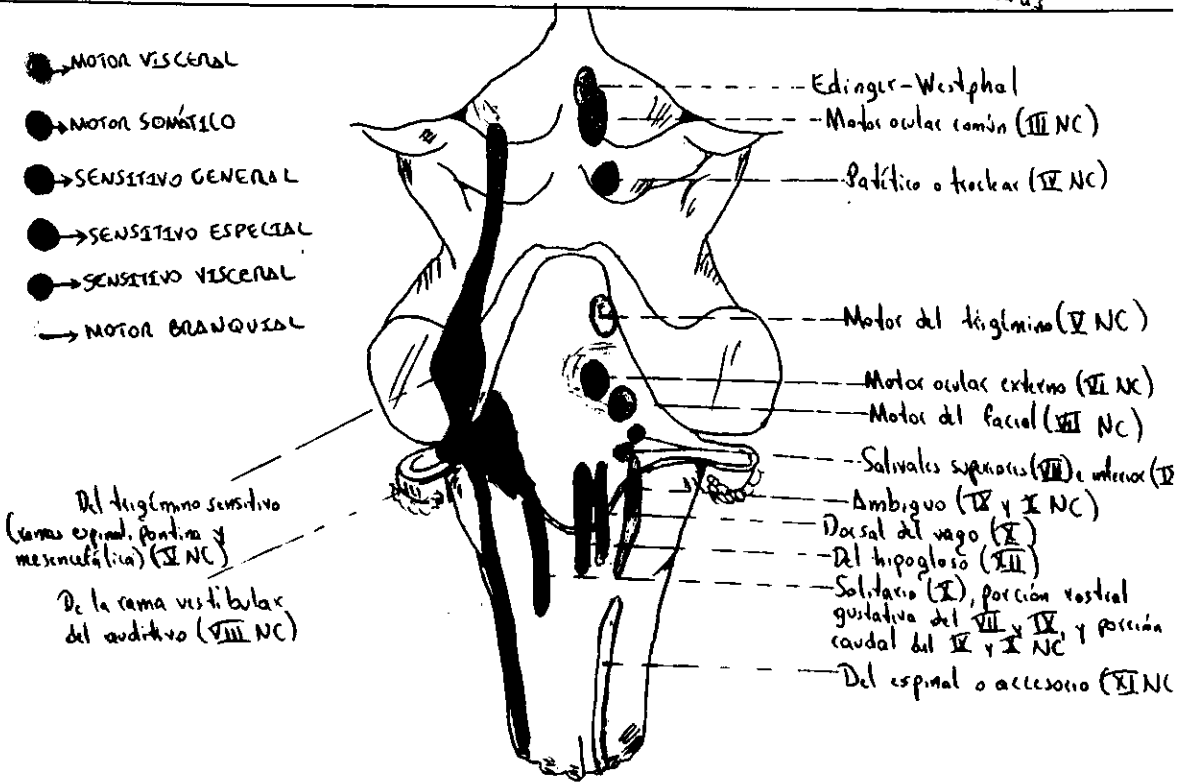 MOTOR VISCERAL
MOTOR SOMÁTICO
SENSITIVO GENERAL
SENSITIVO ESPECIAL
SENSITIVO VISCERAL
MOTOR BRANQUIAL
Edinger-Westphal
Motor ocular común (III NC)
Patético o troclear (IV NC)
Motor del trigémino (V NC)
Motor ocular externo (VI NC)
Motor del facial (VII NC)
Salivales superiores (VII) e inferior (IX
Ambiguo (IX y X NC)
Dorsal del vago (X)
Del hipogloso (XII)
Solitario (X), porción rostral
gustativa del VII y IX, y porción
caudal del IX y X NC
Del espinal o accesorio (XI NC
Del trigémino sensitivo
(ramas espinal, pontina y
mesencefálica) (V NC)
De la rama vestibular
del auditivo (VIII NC)